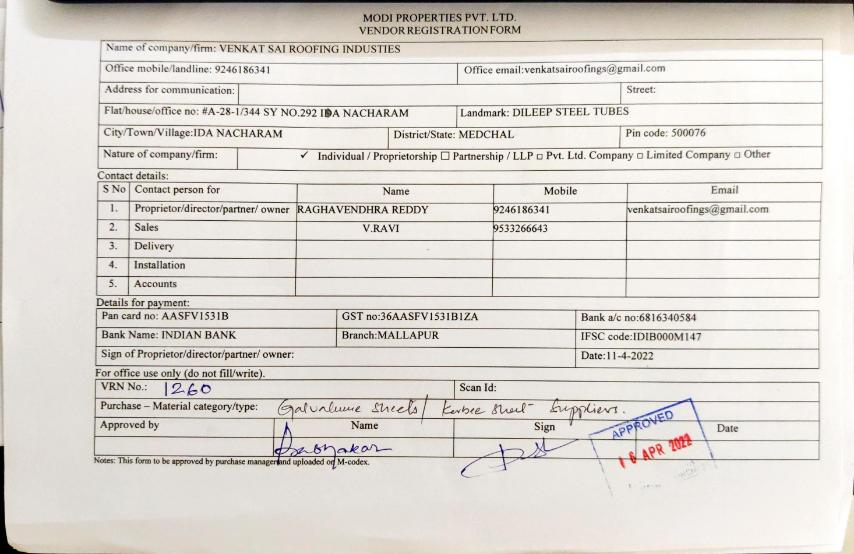 MODI PROPERTIES PVT. LTD.
VENDOR REGISTRATION FORM
Name of company/firm: VENKAT SAI ROOFING INDUSTIES
Office mobile/landline: 9246186341 Office email:venkatsairoofings@gmail.com
Address for communication: Street:
Flat/house/office no: #A-28-1/344 SY NO.292 IDA NACHARAM Landmark: DILEEP STEEL TUBES
City/Town/Village:IDA NACHARAM District/State: MEDCHAL Pin code: 500076
Nature of company/firm: ✓ Individual / Proprietorship □ Partnership / LLP □ Pvt. Ltd. Company □ Limited Company □ Other
Contact details:
S No Contact person for Name Mobile Email
1. Proprietor/director/partner/ owner RAGHAVENDHRA REDDY 9246186341 venkatsairoofings@gmail.com
2. Sales V.RAVI 9533266643
3. Delivery
4. Installation
5. Accounts
Details for payment:
Pan card no: AASFV1531B GST no:36AASFV1531B1ZA Bank a/c no:6816340584
Bank Name: INDIAN BANK Branch:MALLAPUR IFSC code:IDIB000M147
Sign of Proprietor/director/partner/ owner: Date:11-4-2022
For office use only (do not fill/write).
VRN No.: 1260 Scan Id:
Purchase – Material category/type: Galvalume sheets/ Kerbee sheet Suppliers.
Approved by Name Sign Date
APPROVED
16 APR 2022
Prabhakar
Notes: This form to be approved by purchase manager and uploaded on M-codex.